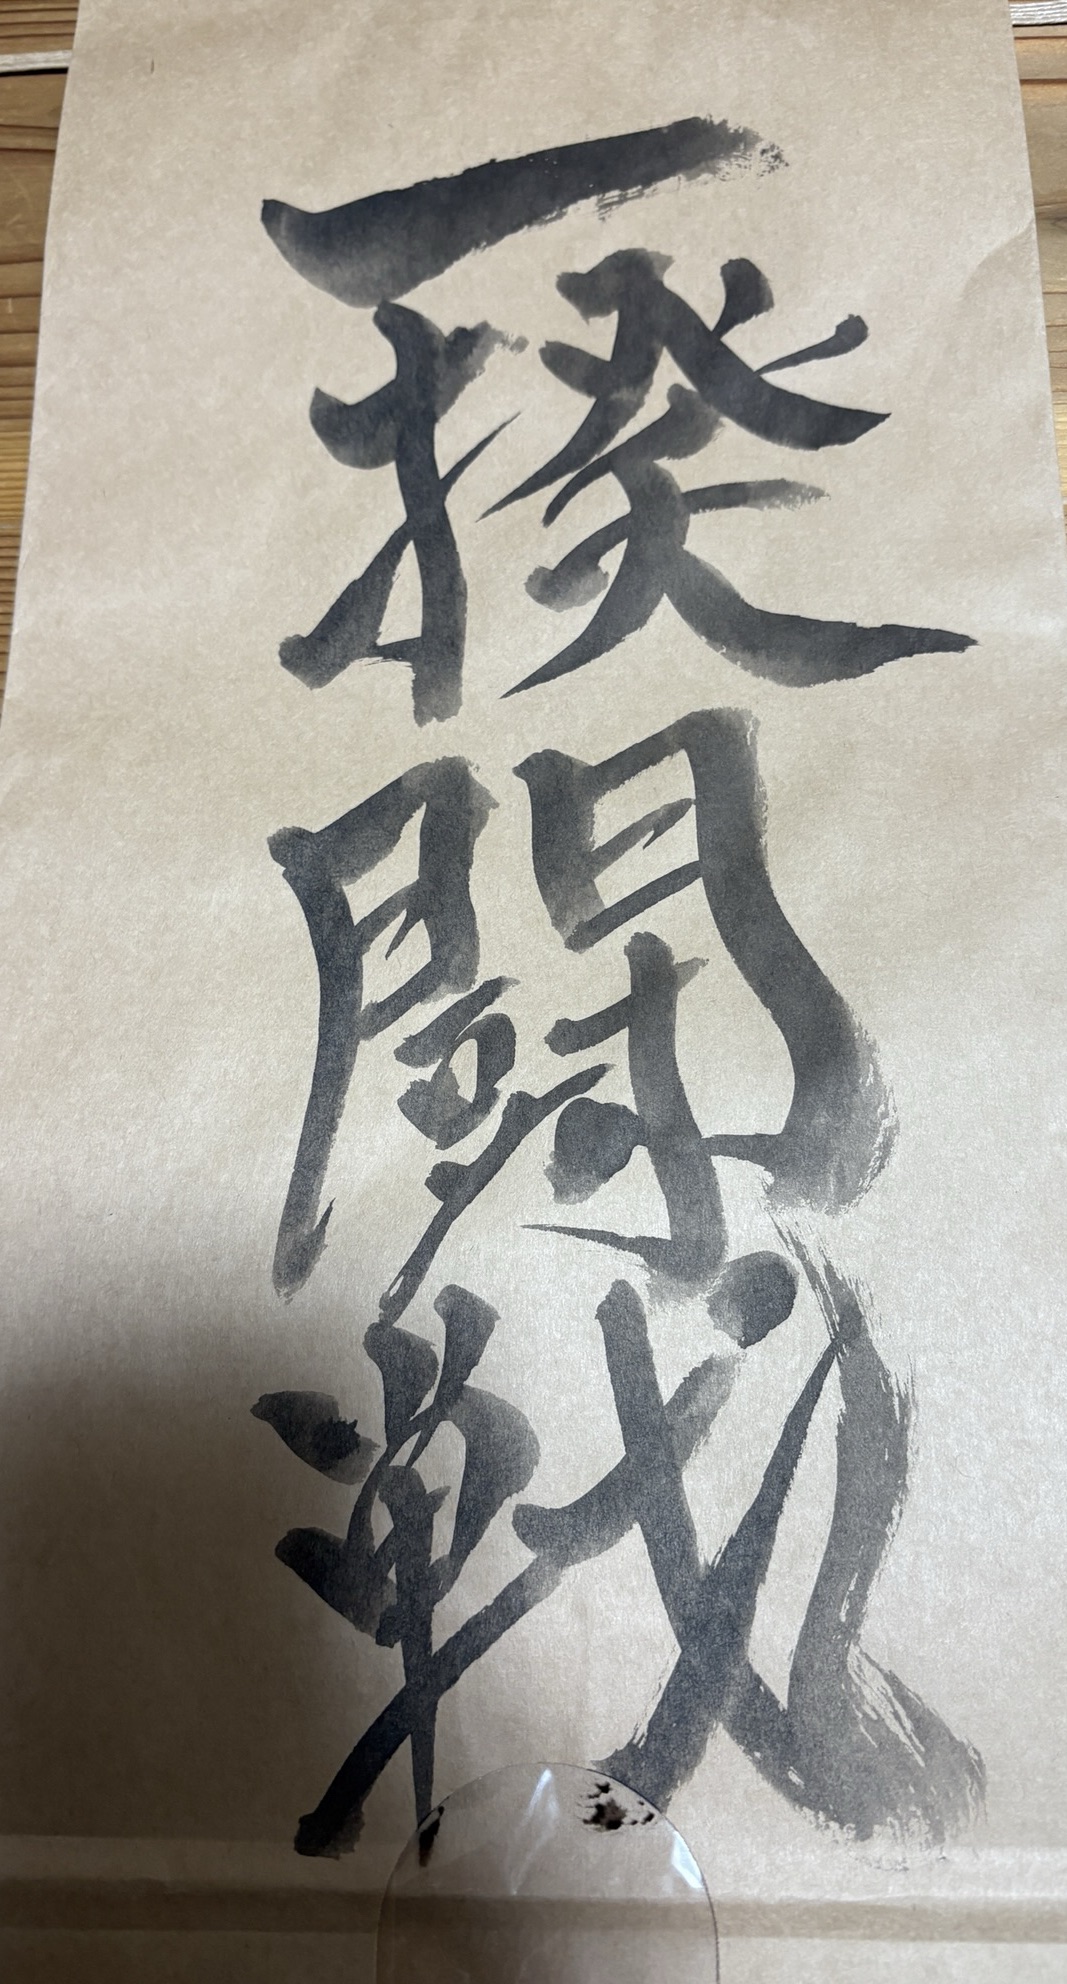 一揆闘戦